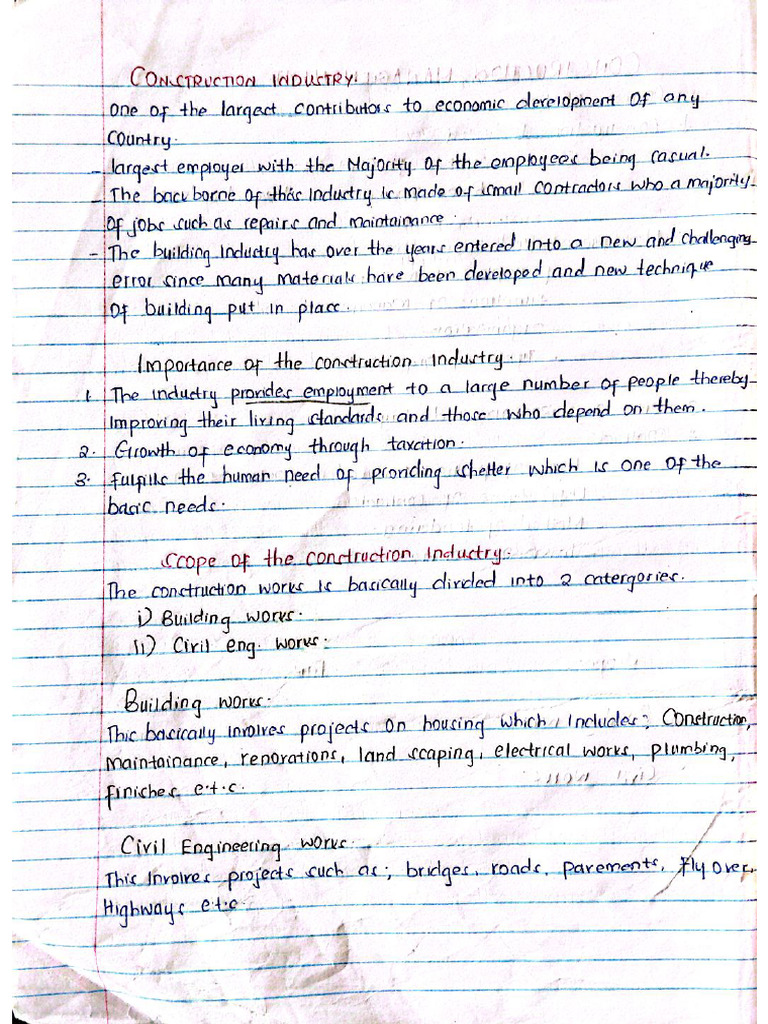 CONSTRUCTION INDUSTRY.
One of the largest contributors to economic development of any
Country.
- largest employer with the Majority of the employees being casual.
- The backborne of this Industry is made of small contractors who a majority
of jobs such as repairs and maintainance.
- The building Industry has over the years entered into a new and challenging
error since many materials have been developed and new technique
Of building put in place.
Importance of the construction Industry.
1. The industry provides employment to a large number of people thereby
Improving their living standards and those who depend on them.
2. Growth of economy through taxation.
3. Fulfills the human need of providing shelter which is one of the
basic needs.
Scope of the construction Industry.
The construction works is basically divided into 2 catergories.
i) Building works.
ii) Civil eng. works.
Building works.
This basically involves projects on housing which includes; Construction,
Maintainance, renovations, land scaping, electrical works, plumbing,
finishes e.t.c.
Civil Engineering works.
This Involves projects such as; bridges, roads, pavements, Fly over,
Highways e.t.c